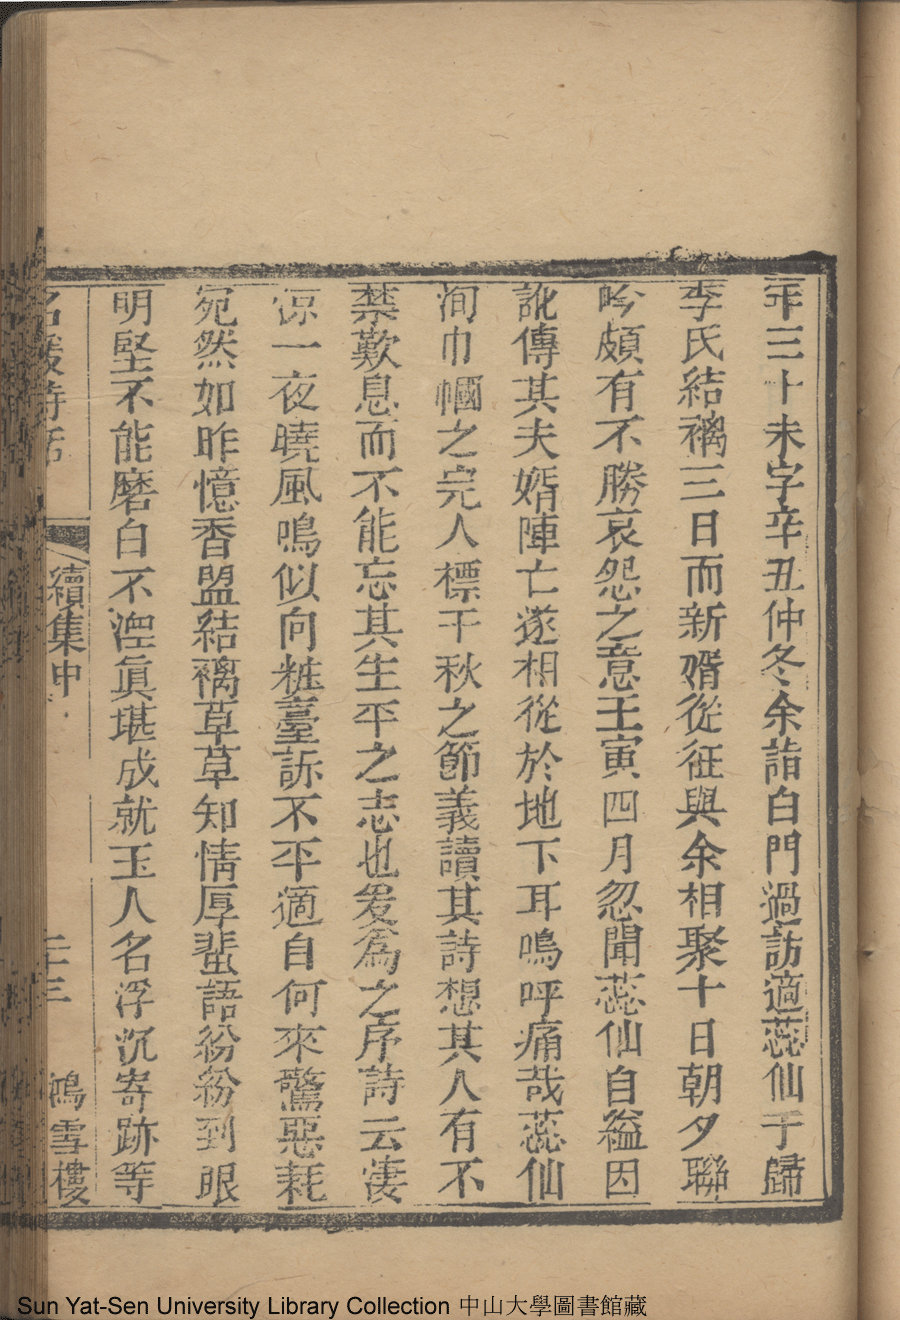 年三十未字辛丑仲冬余詣白門過訪適蕊仙于歸
李氏結褵三日而新婿從征與余相聚十日朝夕聯
吟頗有不勝哀怨之意壬寅四月忽聞蕊仙自縊因
訛傳其夫婿陣亡遂相從於地下耳鳴呼痛哉蕊仙
洵巾幗之完人標千秋之節義讀其詩想其人有不
禁歎息而不能忘其生平之志也爰為之序詩云淒
涼一夜曉風鳴似向粧臺訴不平適自何來驚惡耗
宛然如昨憶香盟結褵草草知情厚蜚語紛紛到眼
明堅不能磨白不湼眞堪成就玉人名浮沉寄跡等
名媛詩話 續集中 二三 鴻雪樓
Sun Yat-Sen University Library Collection 中山大學圖書館藏